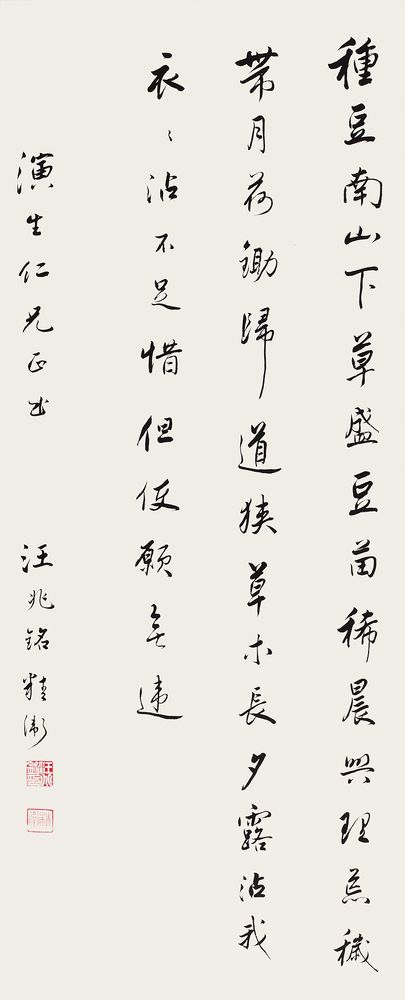 種豆南山下草盛豆苗稀晨興理荒穢
帶月荷鋤歸道狹草木長夕露沾我
衣〻沾不足惜但使願無違
演生仁兄正字
汪兆銘精衛